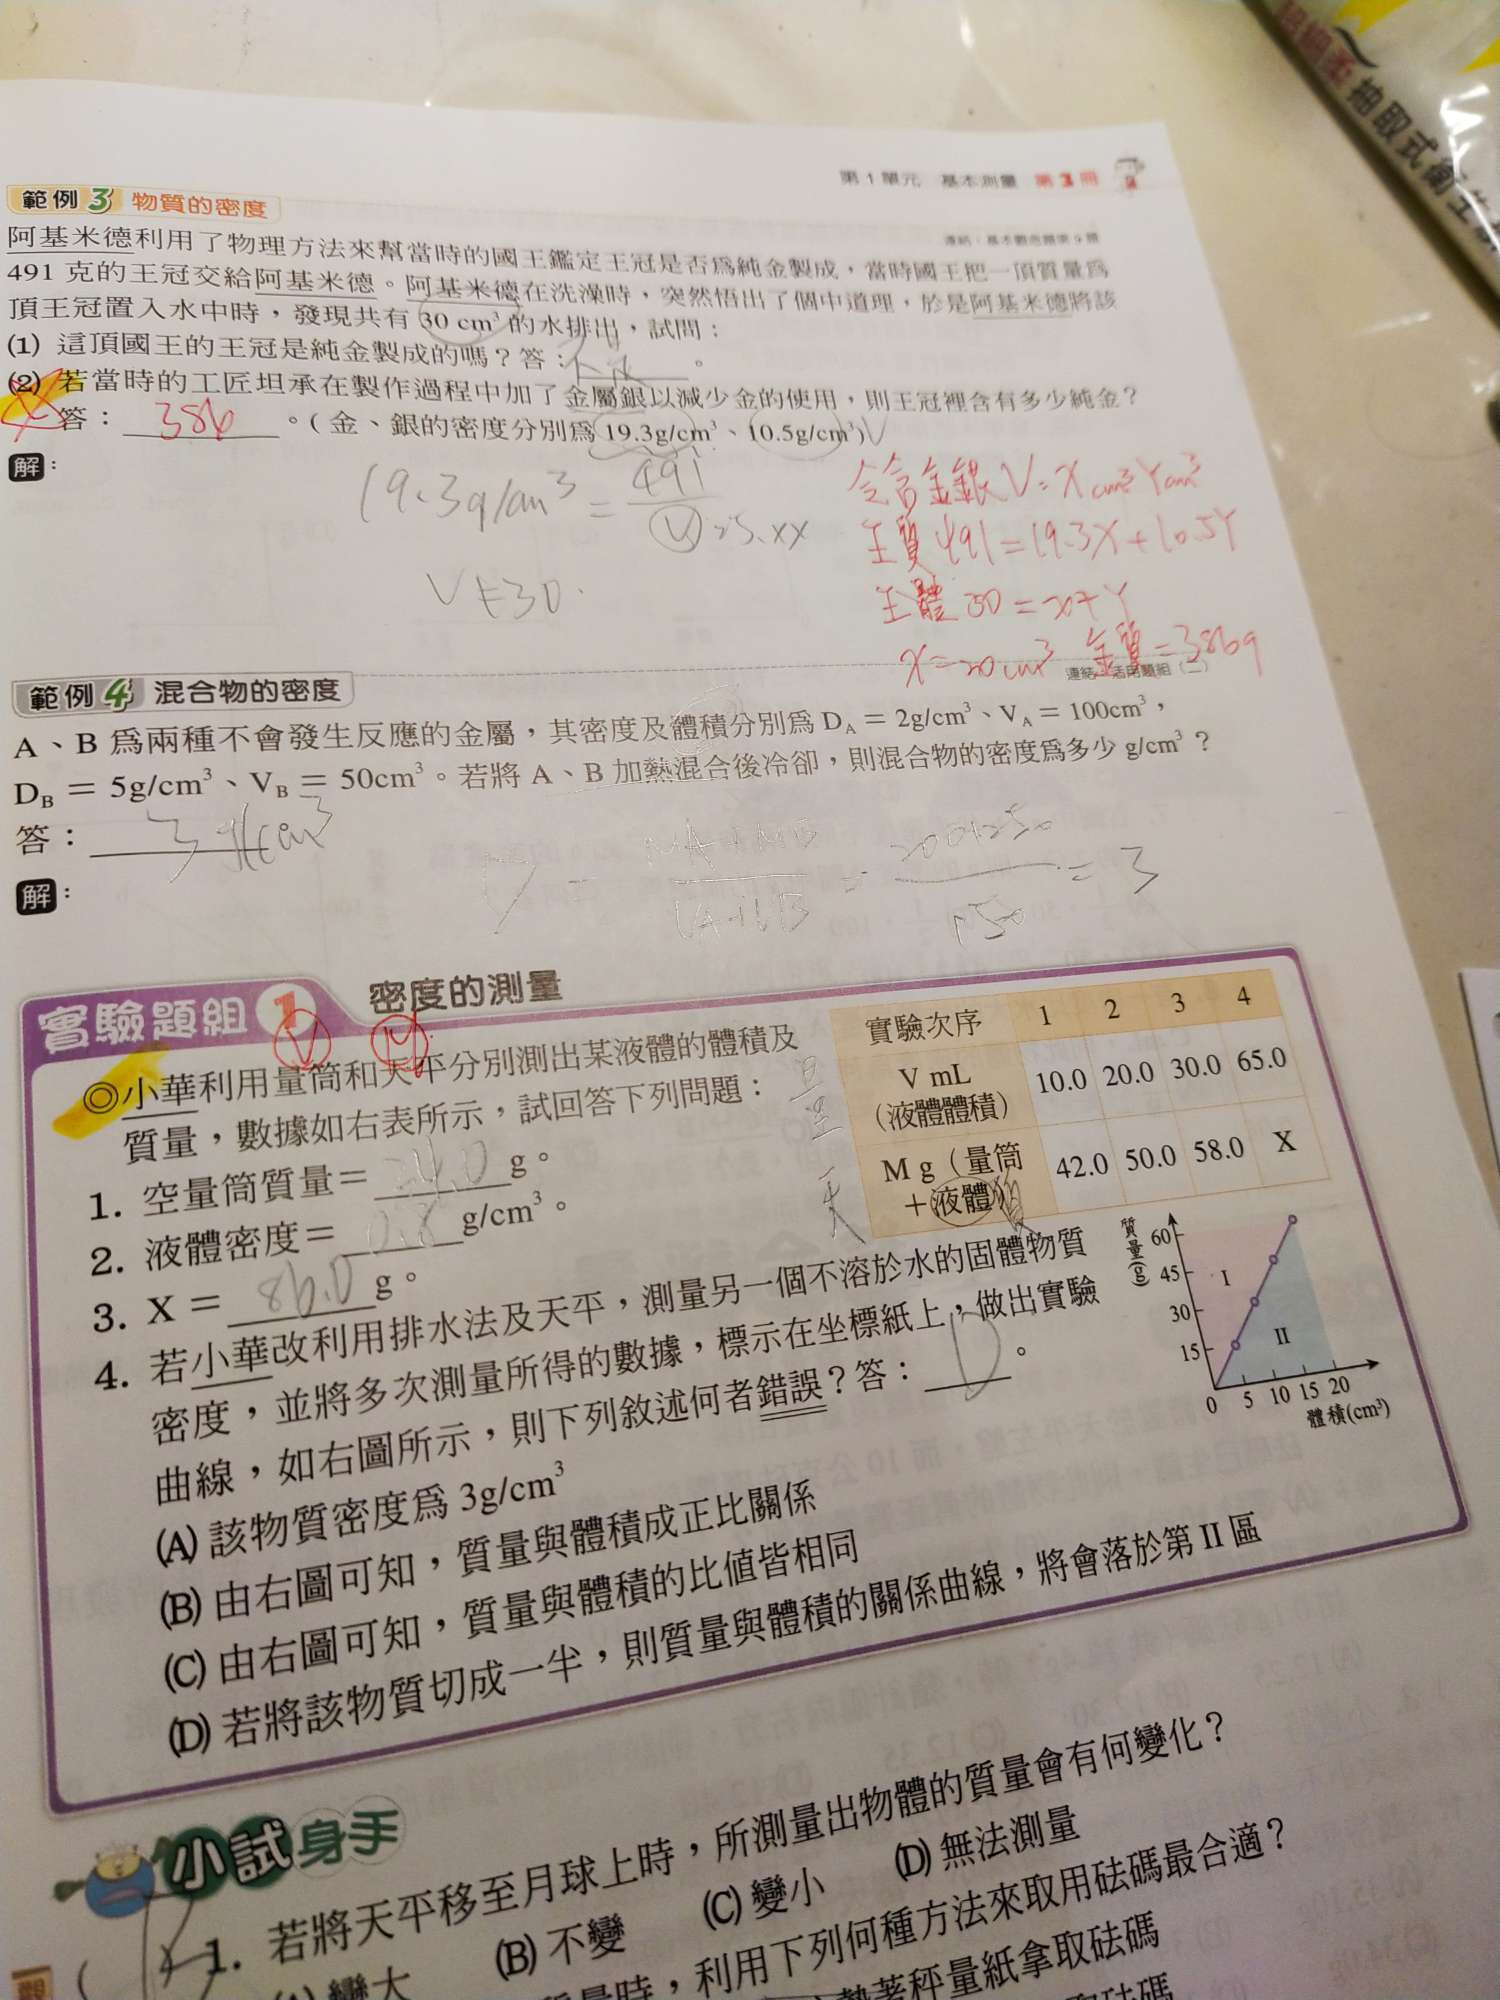 抽取式衛生
第1單元 基本測量 第3冊
範例3 物質的密度
連結：基本觀念題第9題
阿基米德利用了物理方法來幫當時的國王鑑定王冠是否為純金製成，當時國王把一頂質量為
491 克的王冠交給阿基米德。阿基米德在洗澡時，突然悟出了個中道理，於是阿基米德將該
頂王冠置入水中時，發現共有 30 cm³ 的水排出，試問：
(1) 這頂國王的王冠是純金製成的嗎？答： 。
(2) 若當時的工匠坦承在製作過程中加了金屬銀以減少金的使用，則王冠裡含有多少純金？
答： 386 。(金、銀的密度分別為 19.3g/cm³、10.5g/cm³)
解：
19.3g/cm³ = 491/V
V≠30.
令含金銀V=Xcm³ Ycm³
王質 491=19.3X+10.5Y
王體 30=X+Y
X=20cm³ 金質=386g
連結：活用題組（二）
範例4 混合物的密度
A、B 為兩種不會發生反應的金屬，其密度及體積分別為 D_A = 2g/cm³、V_A = 100cm³，
D_B = 5g/cm³、V_B = 50cm³。若將 A、B 加熱混合後冷卻，則混合物的密度為多少 g/cm³？
答： 3 g/cm³
解：
D = MA+MB/VA+VB = 200+250/150 = 3
實驗題組 1 密度的測量
V M
◎小華利用量筒和天平分別測出某液體的體積及
質量，數據如右表所示，試回答下列問題：
1. 空量筒質量＝ 34.0 g。
2. 液體密度＝ 0.8 g/cm³。
3. X＝ 86.0 g。
4. 若小華改利用排水法及天平，測量另一個不溶於水的固體物質
密度，並將多次測量所得的數據，標示在坐標紙上，做出實驗
曲線，如右圖所示，則下列敘述何者錯誤？答： D 。
(A) 該物質密度為 3g/cm³
(B) 由右圖可知，質量與體積成正比關係
(C) 由右圖可知，質量與體積的比值皆相同
(D) 若將該物質切成一半，則質量與體積的關係曲線，將會落於第 II 區
實驗次序 1 2 3 4
V mL
（液體體積） 10.0 20.0 30.0 65.0
M g（量筒
＋液體） 42.0 50.0 58.0 X
天
質量(g)
60
45
30
15
I
II
0 5 10 15 20
體積(cm³)
小試身手
1. 若將天平移至月球上時，所測量出物體的質量會有何變化？
(A) 變大 (B) 不變 (C) 變小 (D) 無法測量
質量時，利用下列何種方法來取用砝碼最合適？
墊著秤量紙拿取砝碼
取砝碼